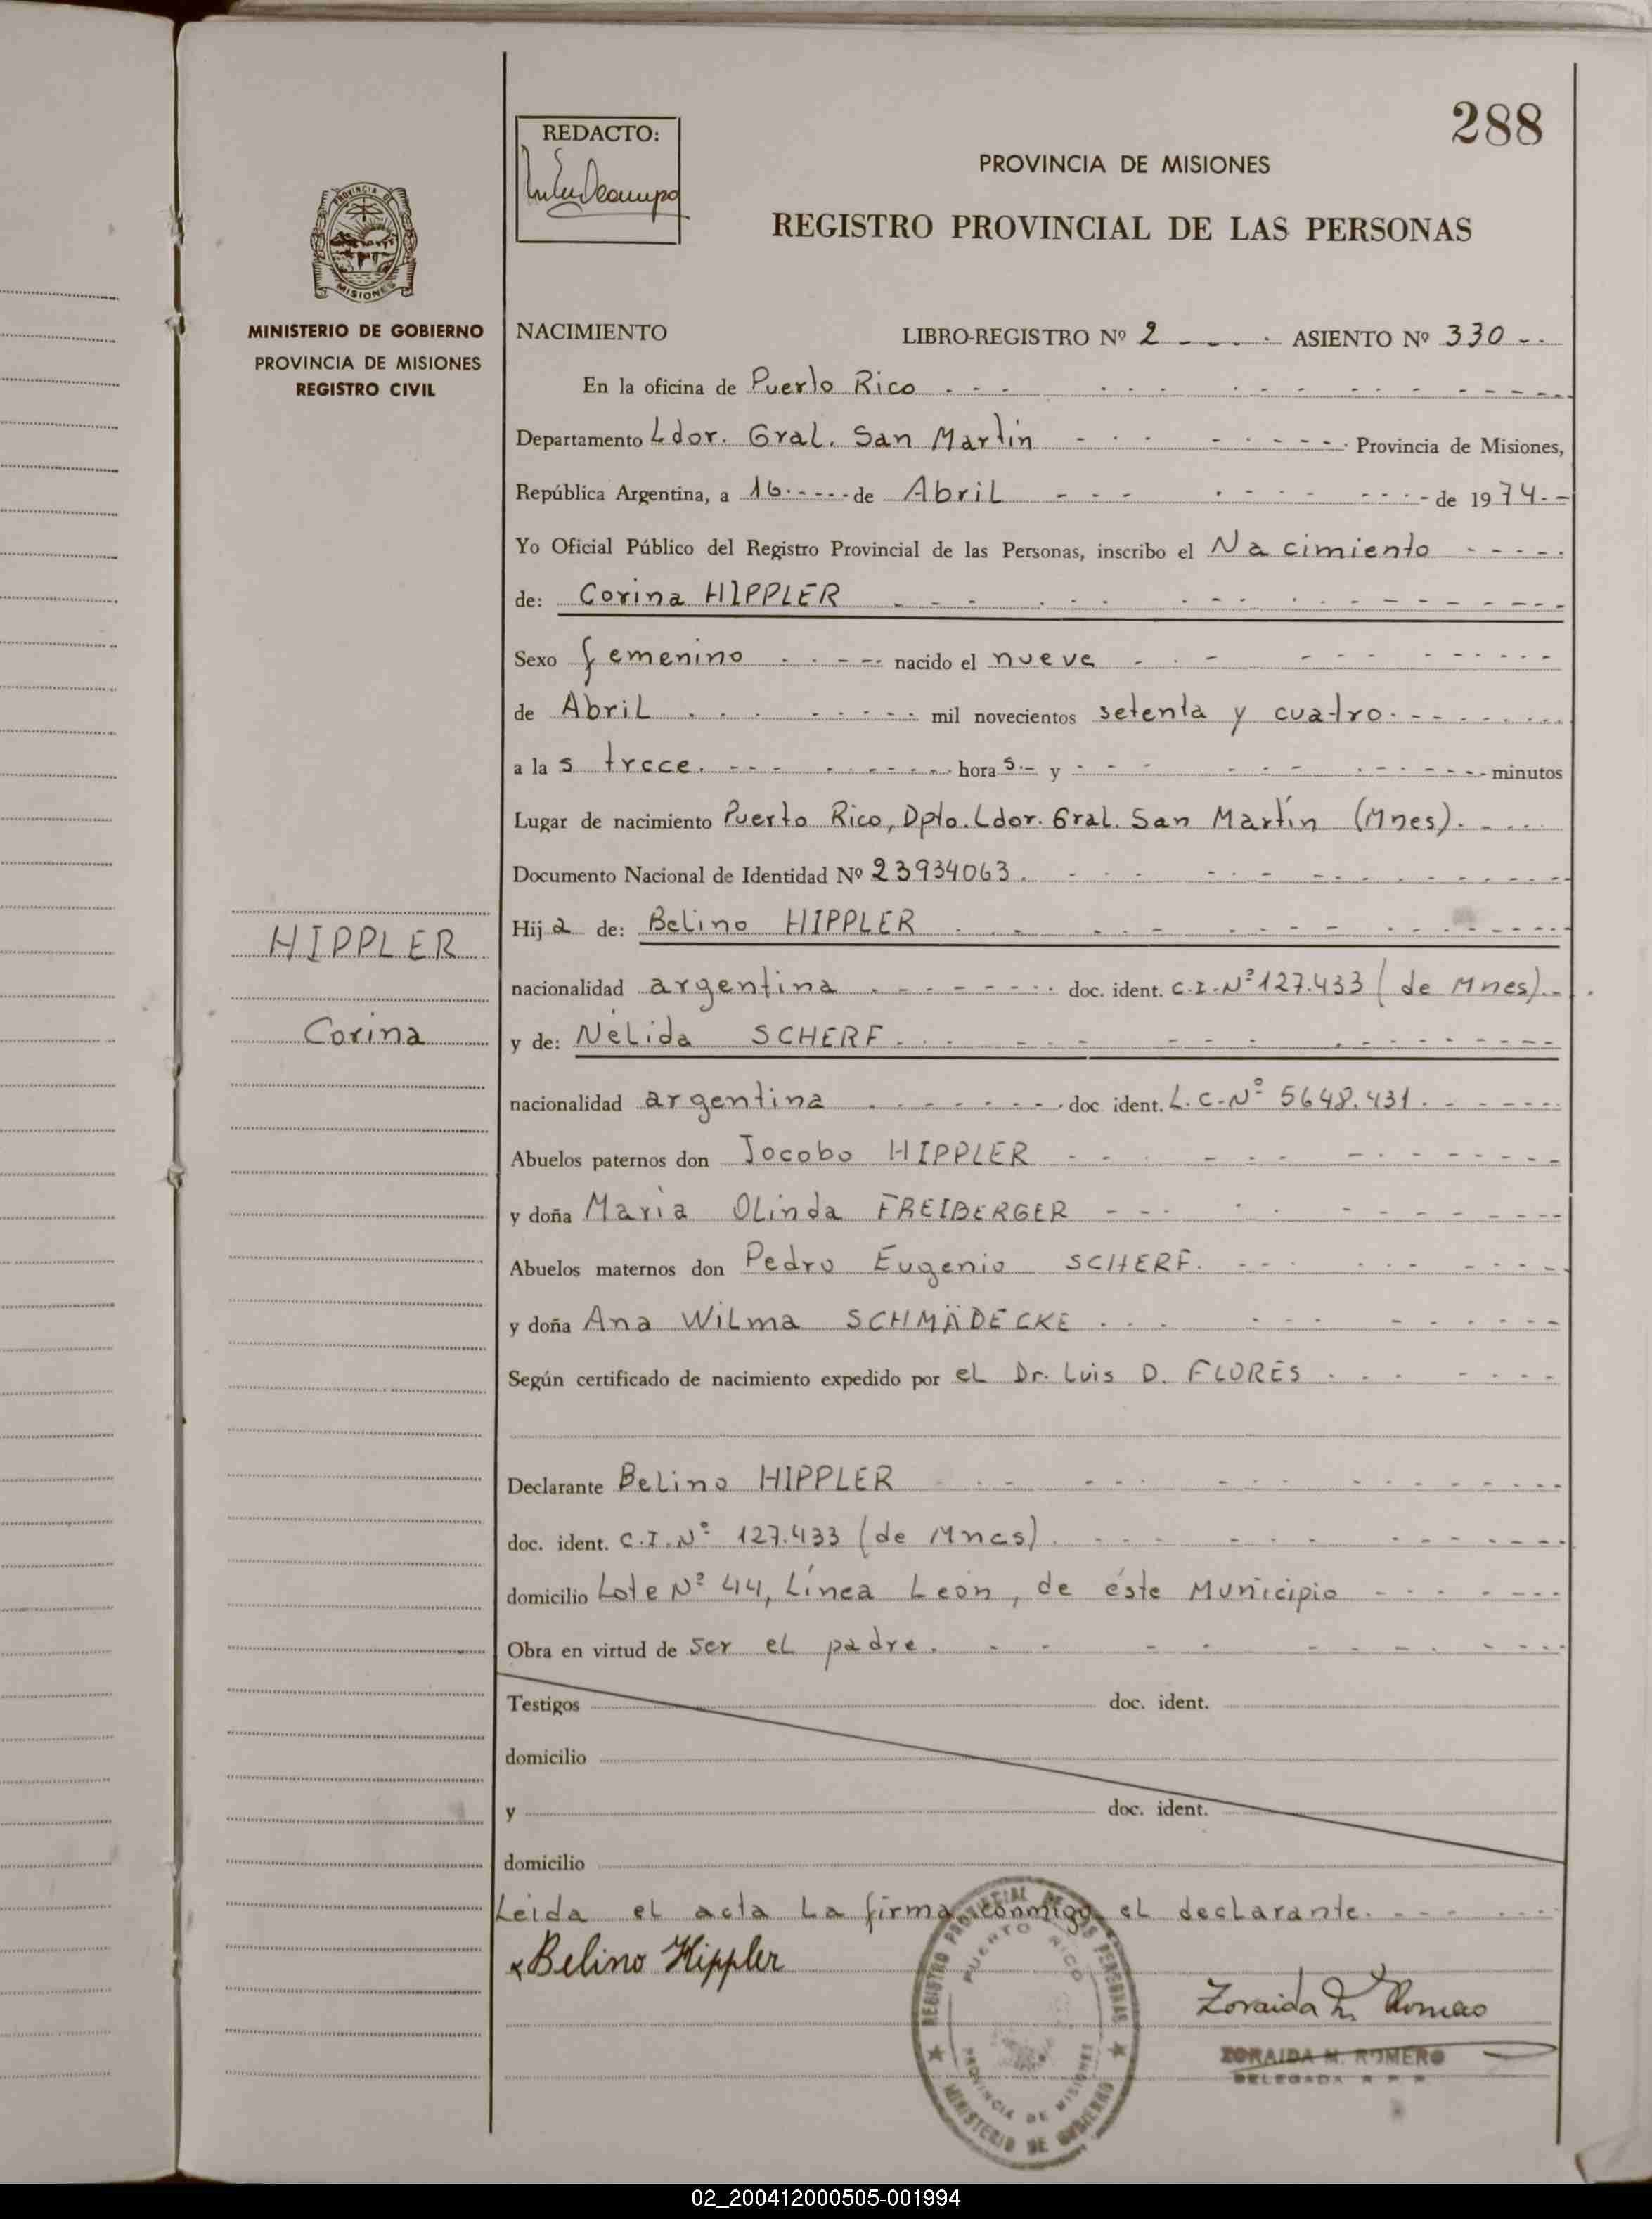 288
REDACTO:
PROVINCIA DE MISIONES
REGISTRO PROVINCIAL DE LAS PERSONAS
PROVINCIA DE
MISIONES
MINISTERIO DE GOBIERNO
PROVINCIA DE MISIONES
REGISTRO CIVIL
NACIMIENTO LIBRO-REGISTRO Nº 2 - - - . ASIENTO Nº 330 - .
En la oficina de Puerto Rico
Departamento Ldor. Gral. San Martín Provincia de Misiones,
República Argentina, a 16 de Abril de 1974.-
Yo Oficial Público del Registro Provincial de las Personas, inscribo el Nacimiento
de: Corina HIPPLER
Sexo femenino nacido el nueve
de Abril mil novecientos setenta y cuatro.
a las trece. horas.- y minutos
Lugar de nacimiento Puerto Rico, Dpto. Ldor. Gral. San Martín (Mnes).
Documento Nacional de Identidad Nº 23934063.
Hija de: Belino HIPPLER
HIPPLER
nacionalidad argentina doc. ident. C.I. Nº 127.433 (de Mnes).-
Corina
y de: Nélida SCHERF.
nacionalidad argentina doc ident. L.C. Nº 5648.431.
Abuelos paternos don Jocobo HIPPLER
y doña María Olinda FREIBERGER
Abuelos maternos don Pedro Eugenio SCHERF.
y doña Ana Wilma SCHMÄDECKE
Según certificado de nacimiento expedido por el Dr. Luis D. FLORES
Declarante Belino HIPPLER
doc. ident. C.I. Nº 127.433 (de Mnes)
domicilio Lote Nº 44, Línea León, de éste Municipio
Obra en virtud de ser el padre.
Testigos doc. ident.
domicilio
y doc. ident.
domicilio
Leida el acta la firma conmigo el declarante.
x Belino Hippler
REGISTRO PROVINCIAL DE LAS PERSONAS
PUERTO RICO
PROVINCIA DE MISIONES
MINISTERIO DE GOBIERNO
Zoraida M. Romero
ZORAIDA M. ROMERO
DELEGADA R. P. P.
02_200412000505-001994